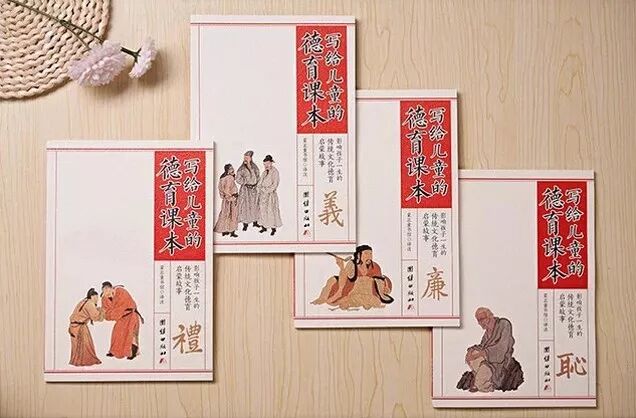 写给儿童的
德育课本
影响孩子一生的
传统文化德育
启蒙故事
禮
團结出版社
写给儿童的
德育课本
影响孩子一生的
传统文化德育
启蒙故事
義
團结出版社
写给儿童的
德育课本
影响孩子一生的
传统文化德育
启蒙故事
廉
團结出版社
写给儿童的
德育课本
影响孩子一生的
传统文化德育
启蒙故事
恥
團结出版社